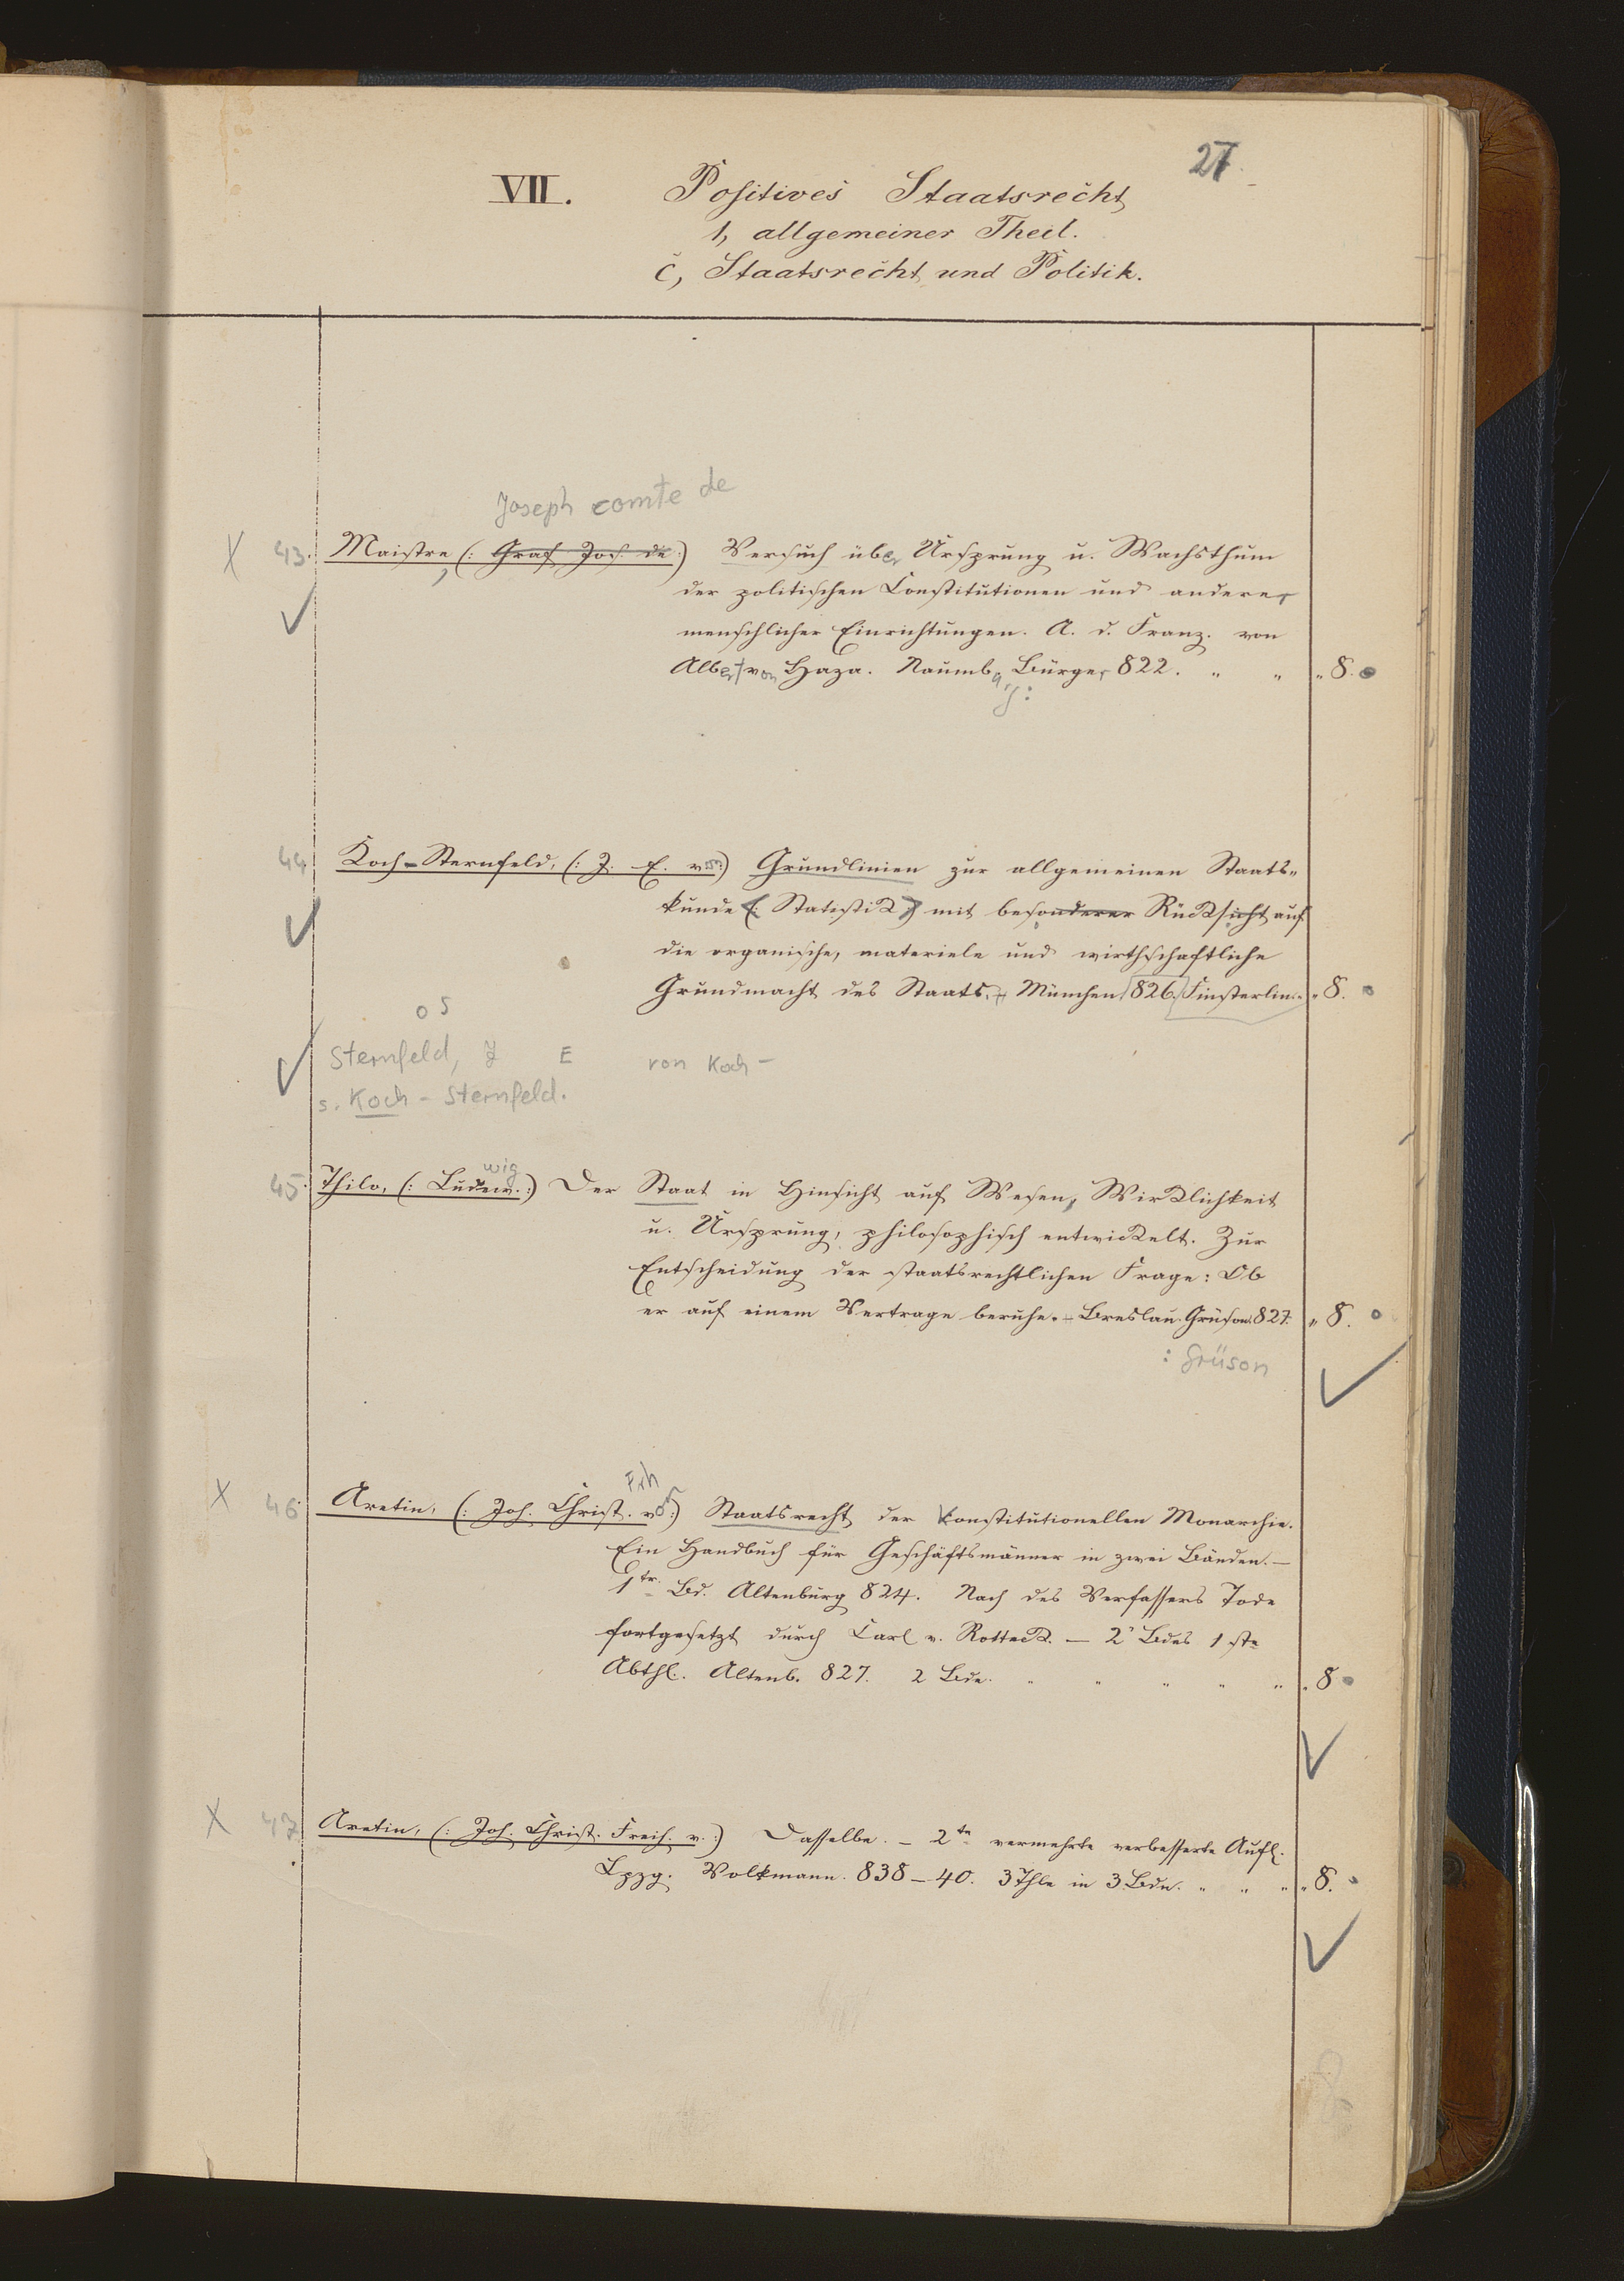 27.
VII. Positives Staatsrecht
1, allgemeiner Theil.
c, Staatsrecht und Politik.
Joseph comte de
X 43. Maistre, (: Graf Jos. de :) Versuch über Ursprung u. Wachsthum
der politischen Constitutionen und anderer
menschlicher Einrichtungen. A. d. Franz. von
Albert von Haza. Naumbg Bürger 822. " " " 8.
44. Koch-Sternfeld, (: J. E. von :) Grundlinien zur allgemeinen Staats-
kunde (: Statistik :) mit besonderer Rücksicht auf
die organische, materiele und wirthschaftliche
Grundmacht des Staats. München 826. Finsterlin. " 8.
os
Sternfeld, J E von Koch-
s. Koch-Sternfeld.
wig
45. Thilo, (: Ludew. :) Der Staat in Hinsicht auf Wesen, Wirklichkeit
u. Ursprung, philosophisch entwickelt. Zur
Entscheidung der staatsrechtlichen Frage: Ob
er auf einem Vertrage beruhe. - Breslau. Grüson. 827. " 8.
: Grüson
Frh
X 46. Aretin, (: Joh. Christ. von :) Staatsrecht der Konstitutionellen Monarchie.
Ein Handbuch für Geschäftsmänner in zwei Bänden. -
1tr. Bd. Altenburg 824. Nach des Verfassers Tode
fortgesetzt durch Carl v. Rotteck. - 2' Bdes 1ste
Abthl. Altenb. 827. 2 Bde. " " " " " " 8
X 47 Aretin, (: Joh. Christ. Freih. v. :) Dasselbe. - 2te vermehrte verbesserte Aufl.
Lpzg. Volkmann. 838-40. 3 Thle in 3 Bdn. " " " " 8.